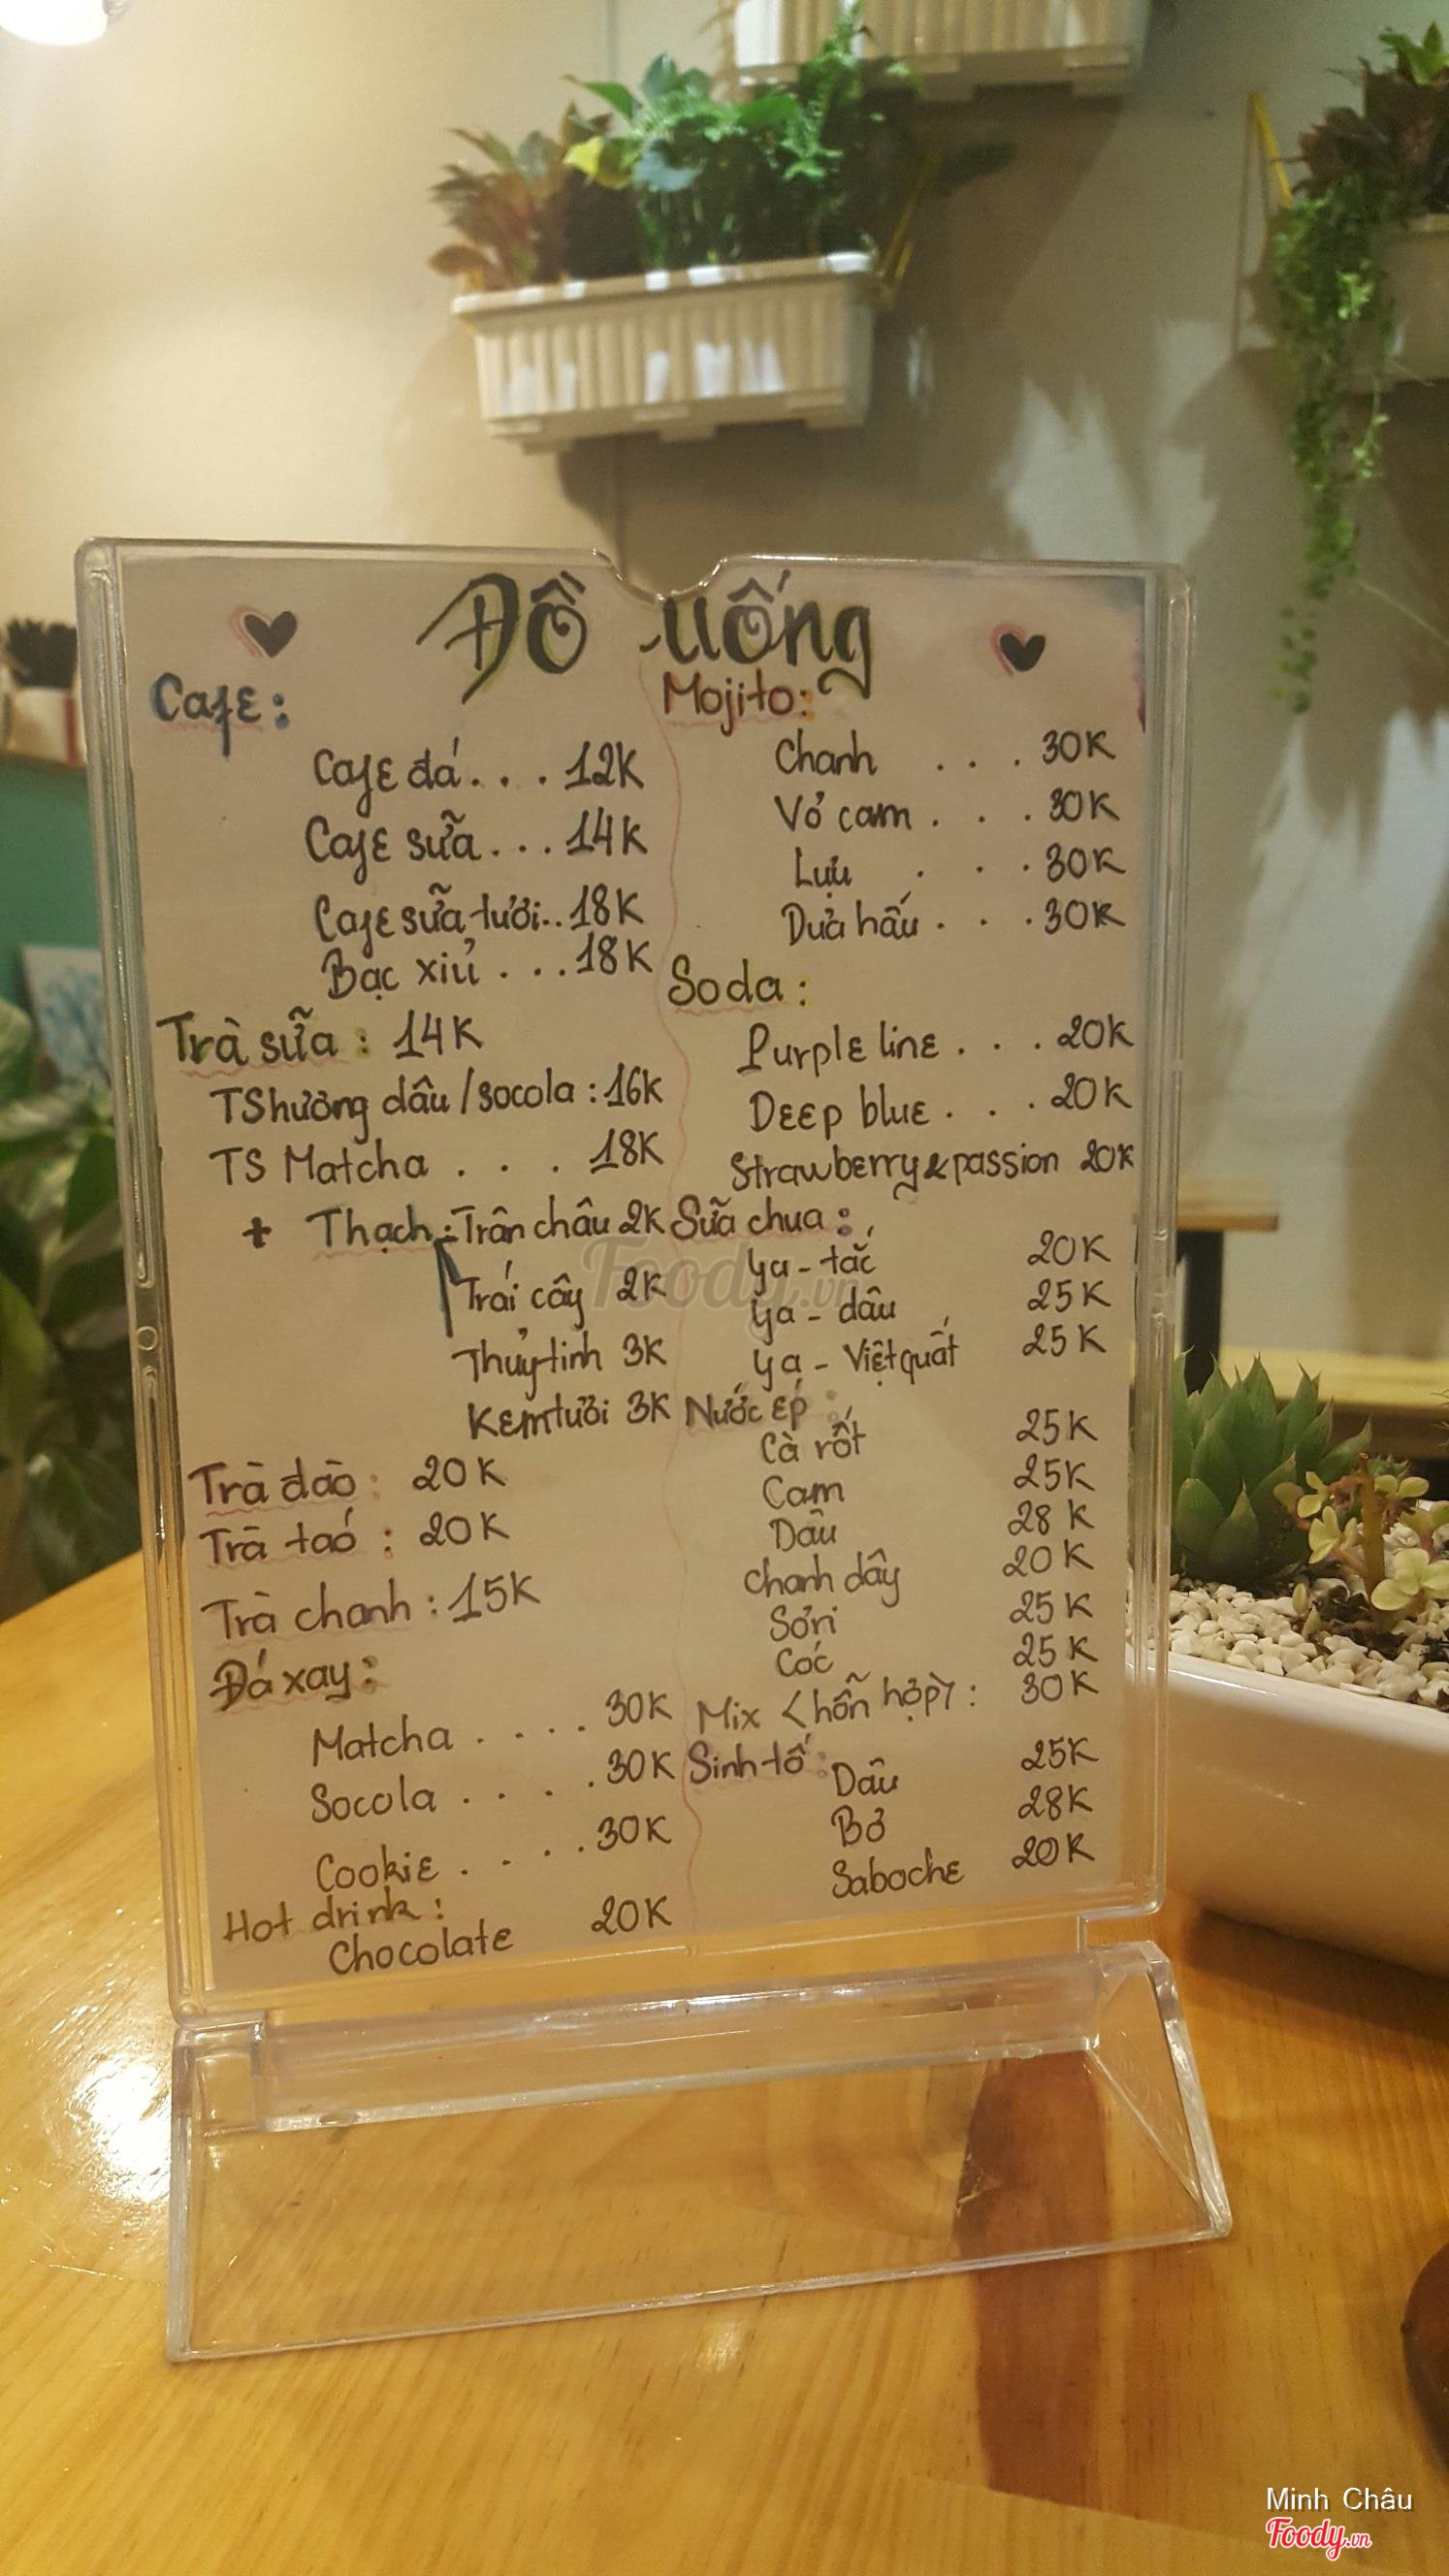 Đồ uống
Cafe:
Cafe đá... 12K
Cafe sữa... 14K
Cafe sữa tươi.. 18K
Bạc xỉu ... 18K
Trà sữa : 14K
TS hương dâu / socola : 16K
TS Matcha . . . 18K
+ Thạch : Trân châu 2K
Trái cây 2K
Thủy tinh 3K
Kem tươi 3K
Trà đào : 20K
Trà táo : 20K
Trà chanh : 15K
Đá xay :
Matcha . . . . 30K
Socola . . . . 30K
Cookie . . . . 30K
Hot drink :
Chocolate 20K
Mojito:
Chanh . . . 30K
Vỏ cam . . . 30K
Lựu . . . 30K
Dưa hấu . . . 30K
Soda :
Purple line . . . 20K
Deep blue . . . 20K
Strawberry & passion 20K
Sữa chua :
Ya - tắc 20K
Ya - dâu 25K
Ya - Việt quất 25K
Nước ép :
Cà rốt 25K
Cam 25K
Dâu 28K
Chanh dây 20K
Sơri 25K
Cóc 25K
Mix <hỗn hợp> : 30K
Sinh tố :
Dâu 25K
Bơ 28K
Saboche 20K
Foody.vn
Minh Châu
Foody.vn